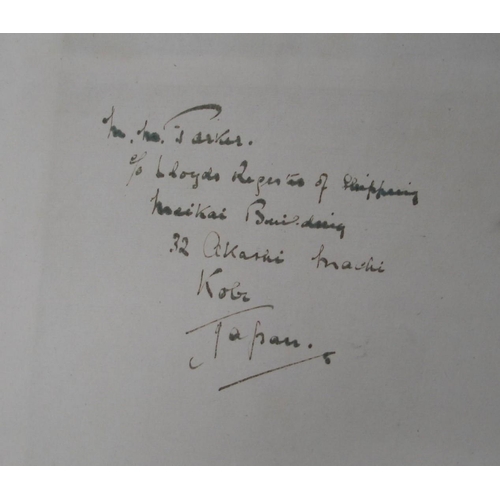 M. M. Parker.
c/o Lloyds Register of Shipping
Meikai Building
32 Akashi Machi
Kobe
Japan.